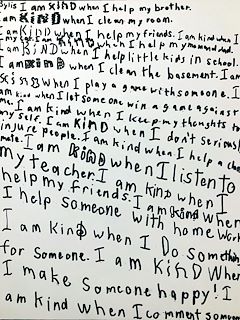 I am KIND when I help my brother.
I am KIND when I clean my room.
I am KIND when I help my friends. I am kind when I
I am KIND when I help my mom and dad.
I am KIND when I help little kids in school.
I am KIND when I clean the basement. I am
when I play a game with someone. I
am kind when I let someone win a game against
me. I am kind when I keep my thoughts to
my self. I am KIND when I don't
injure people. I am kind when I help a
mate. I am KIND when I listen to
my teacher. I am kind when I
help my friends. I am kind when
I help someone with home work
I am KinD when I Do something
for someone. I am KiND when
I make someone happy! I
am kind when I comment someone